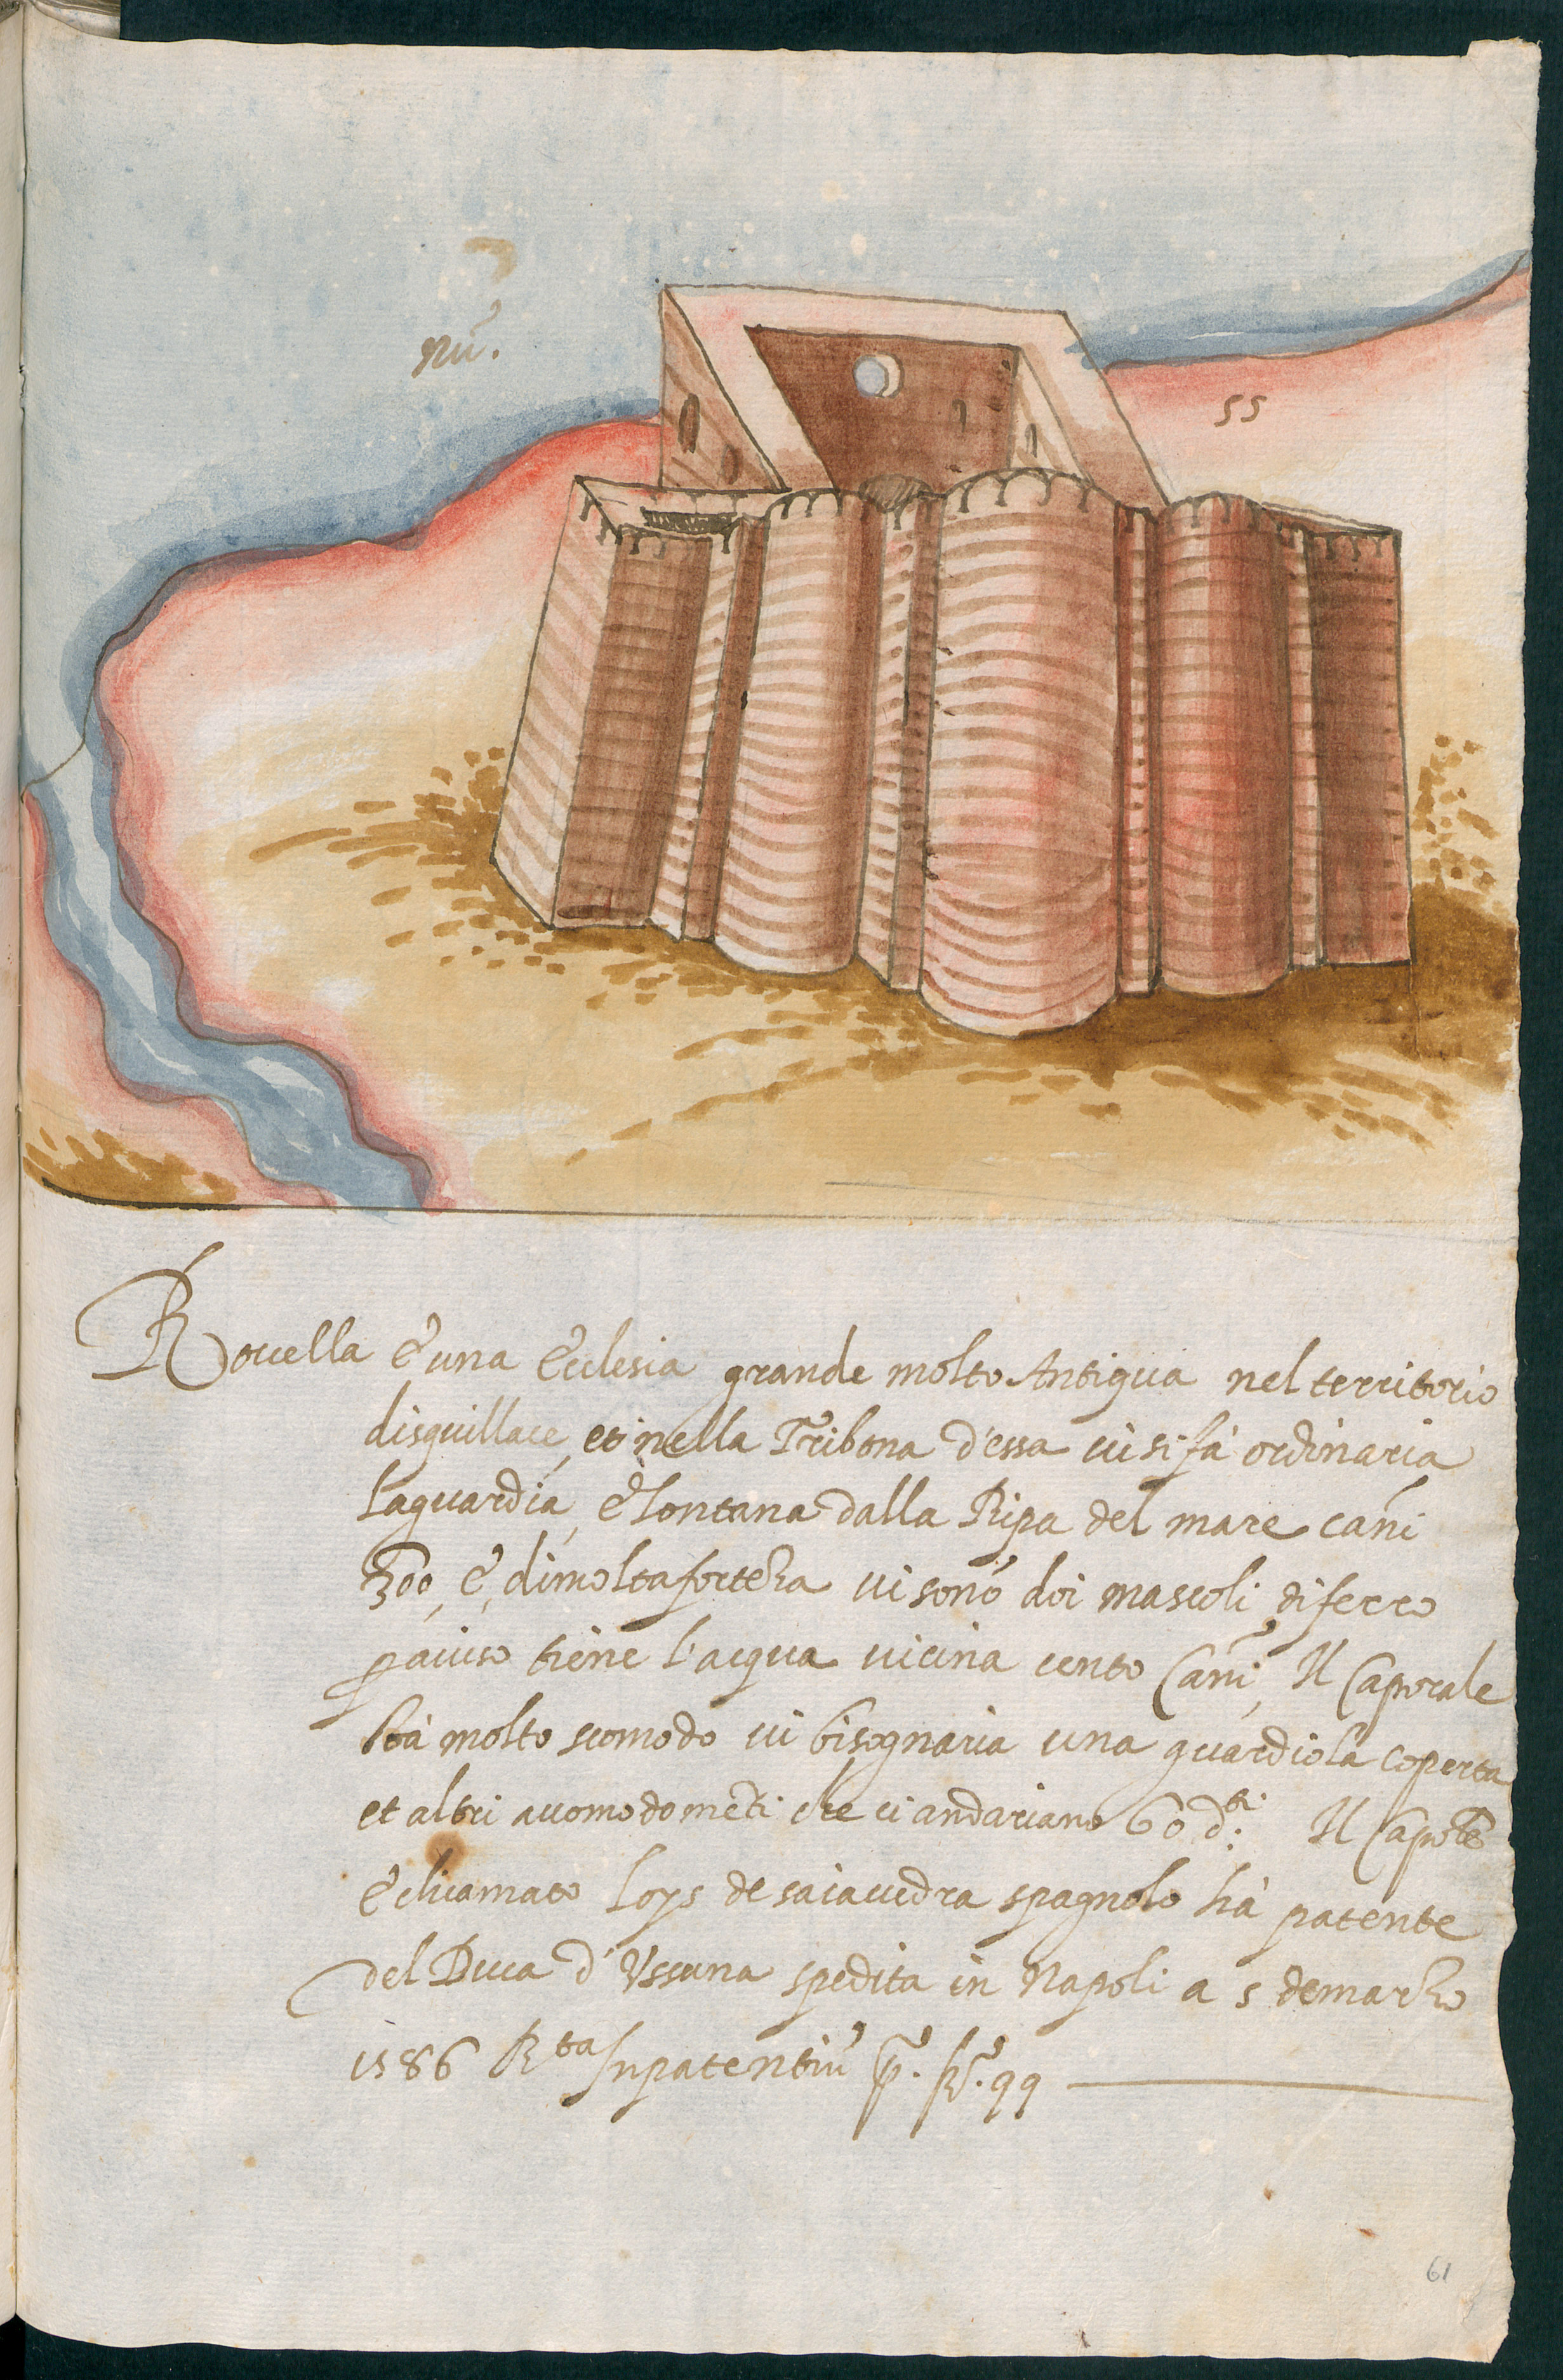 nũ.
55
Rocella è una Ecclesia grande molto Antiqua nel territorio
disquillace, et nella Tribona d'essa vi si fà ordinaria
laguardia, è lontana dalla Ripa del mare cãni
300, è, dimolta forteza vi sonó doi mascoli diferro
aviso tiene l'acqua vicina cento Cãni, Il Caporale
stà molto scomodo vi bisognaria una guardiola coperta
et altri accomodomẽti che ci andariano 60 d.ti Il Caporle
è chiamato Loys de saiavedra spagnolo hà patente
del Duca d'Ussuna spedita in Napoli a 5 demarzo
1586 Rta In patentiũ p.º fº. 99
61